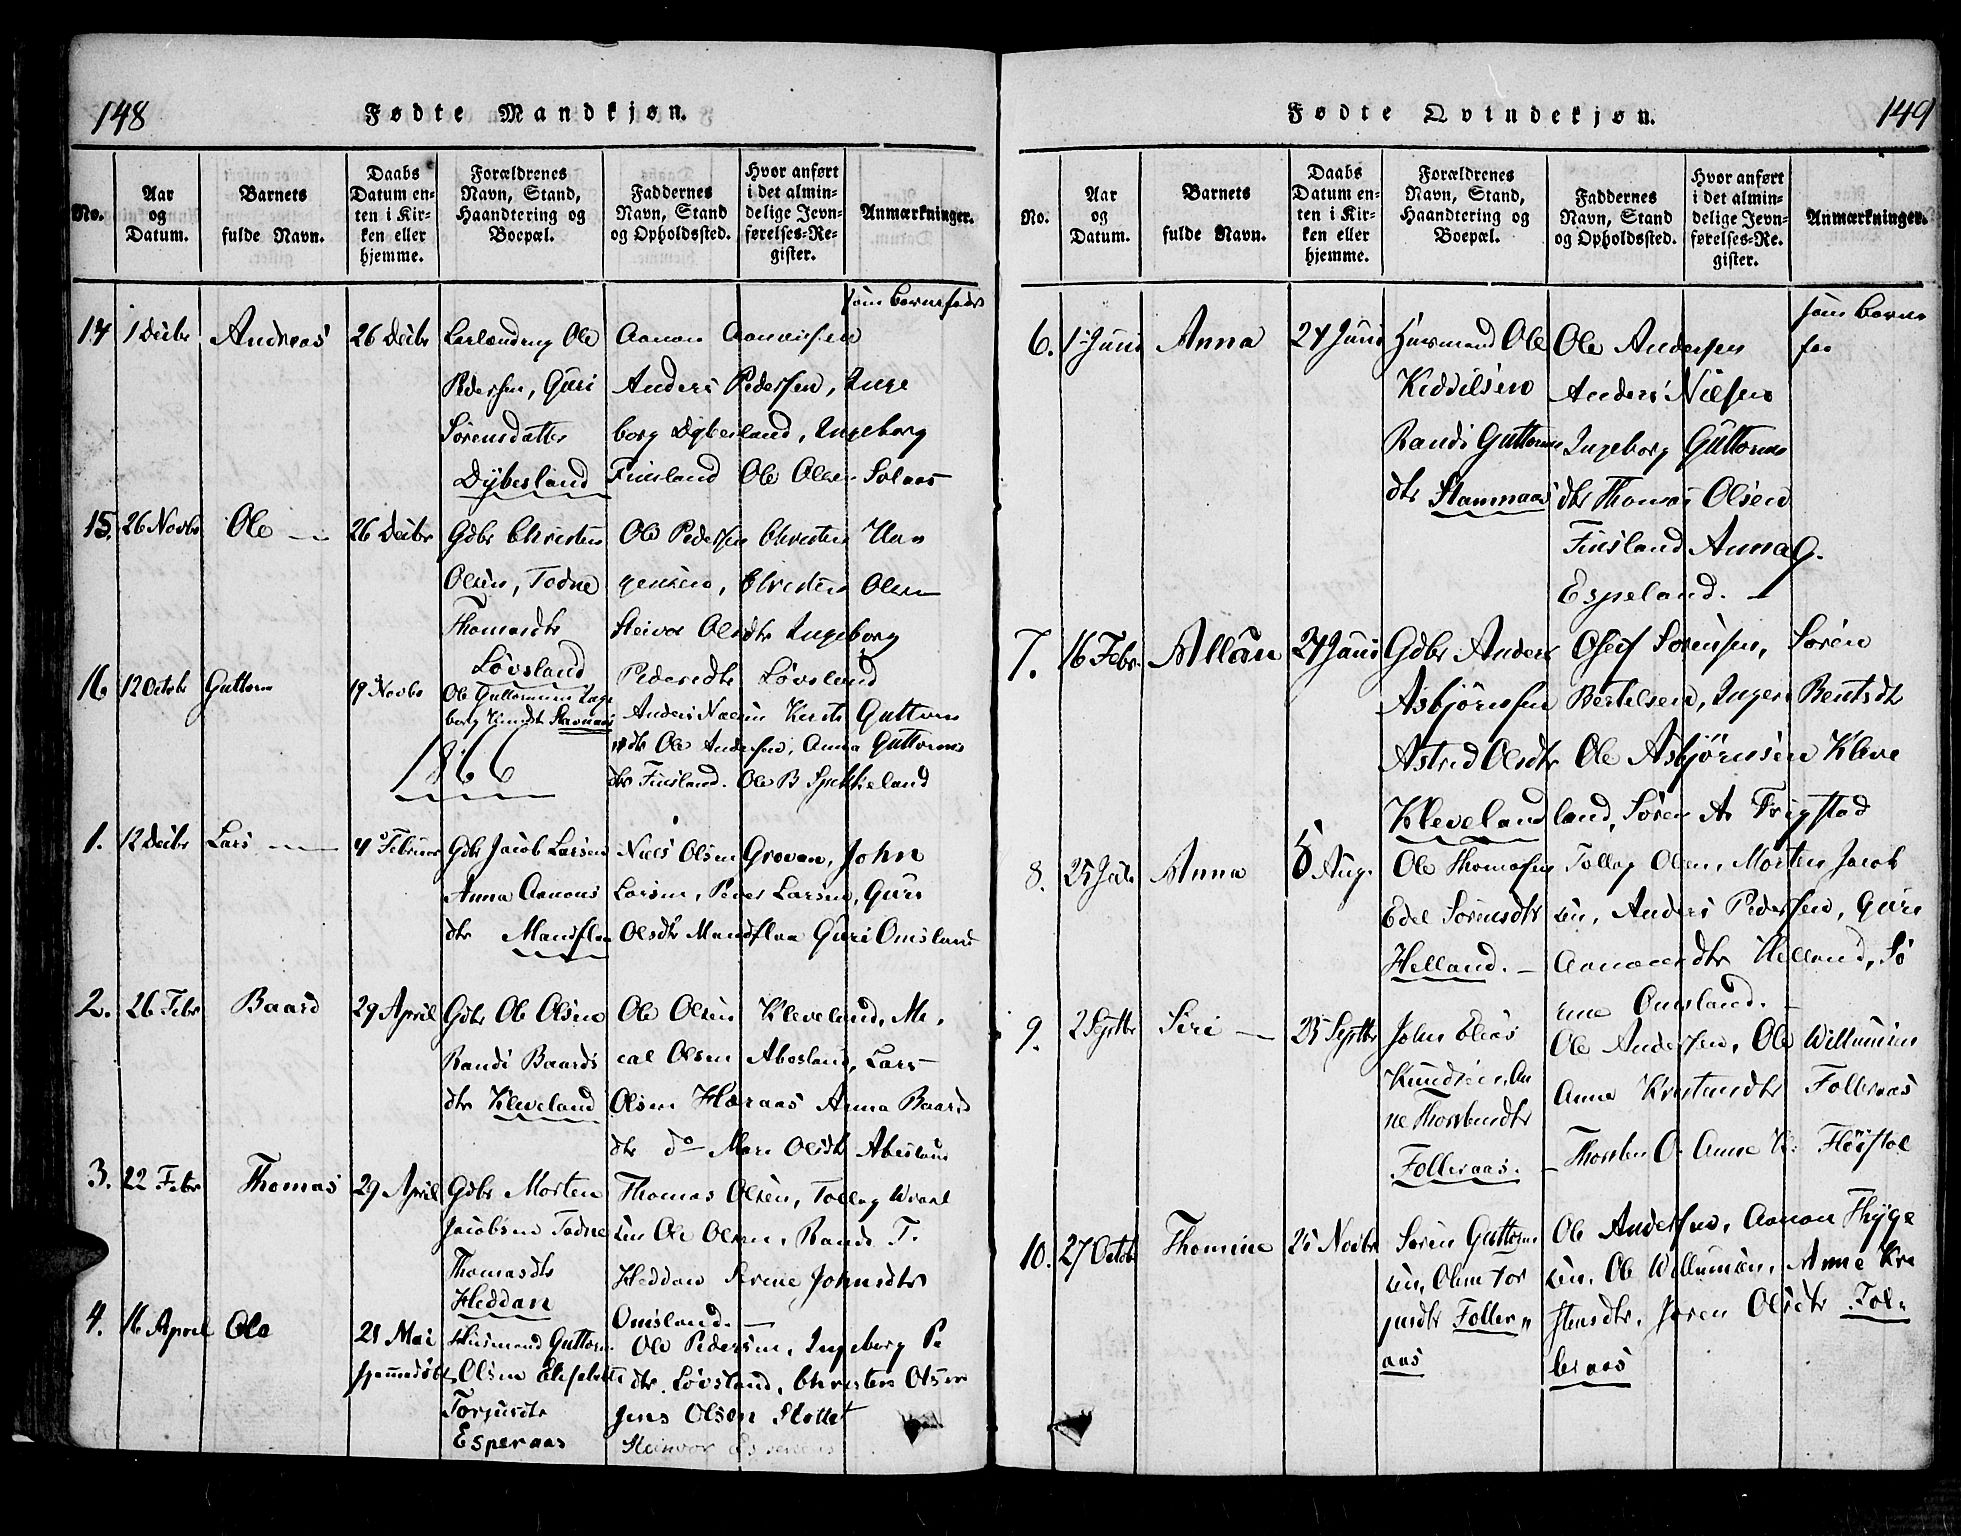 148
Fødte Mandkjøn.
No.
Aar
og
Datum.
Barnets
fulde Navn.
Daabs
Datum en-
ten i Kir-
ken eller
hjemme.
Forældrenes
Navn, Stand,
Haandtering og
Boepæl.
Faddernes
Navn, Stand
og Opholdssted.
Hvor anført
i det almin-
delige Jevn-
førelses-Re-
gister.
Anmærkninger.
14 1 Decbr Andreas 26 Decbr
Ole
Pedersen, Guri
Sørensdatter
Dybesland
Aanon Aanensen
Anders Pedersen, Inge
borg Dybesland, Ingeborg
Finsland Ole Olsen Solaas
15. 26 Novbr Ole 26 Decbr
Gdbr Christen
Olsen, Todne
Thomasdtr
Løvsland
Ole Pedersen Christen
gensen, Christen Olsen
Steivor Olsdtr Ingeborg
Pedersdtr Løvsland
16 12 Octobr Guttorm 19 Novbr
Ole Guttormsen Inge
borg
Anders
dtr Ole Andersen, Anna Guttorms
dtr Finsland. Ole B
1866
1. 12 Decbr Lars 4 Februar
Gdbr Jacob Larsen
Anna Aanons
dtr Mandflaa
Niels Olsen Grovan, John
Larsen, Peder Larsen, Guri
Olsdtr Mandflaa Guri Omsland
2. 26 Febr Baard 29 April
Gdbr Ole Olsen
Randi Baards
dtr Kleveland
Ole Olsen Kleveland, Mi,
cal Olsen Abesland, Lars
Olsen Høraas Anna Baards
dtr do Mari Olsdtr Abesland
3. 22 Febr Thomas 29 April
Gdbr Morten
Jacobsen Todne
Thomasdtr
Heddan
Thomas Olsen, Tollag
sen Ole Olsen, Randi T.
Heddan Serine Johnsdtr
Omsland.
4. 16 April Ole 21 Mai
Husmand Guttorm
Olsen
Torjusdtr
Esperaas
Ole Pedersen, Ingeborg P
dtr. Løvsland, Christen Olsen
Jens Olsen
Steinvor
149
Fødte Qvindekjøn.
No.
Aar
og
Datum.
Barnets
fulde Navn.
Daabs
Datum en-
ten i Kir-
ken eller
hjemme.
Forældrenes
Navn, Stand,
Haandtering og
Boepæl.
Faddernes
Navn, Stand
og Opholdssted.
Hvor anført
i det almin-
delige Jevn-
førelses-Re-
gister.
Anmærkninger.
6. 1 Juni Anna 24 Juni
Husmand Ole
Keddilsen
Randi Guttorms
dtr Stamnaas
Ole Andersen
Anders Nilsen
Ingeborg Guttorms
dtr Thomas Olsen
Finsland Anna G.
Espeland.
7. 16 Febr. 24 Juni
Gdbr Anders
Asbjørnsen
Astrid Olsdtr
Kleveland
Oluf Sørensen, Sören
Bertelsen, Inger Bentsdtr
Ole Asbjørnsen Kleve
land, Sören As Frigstad
8. 25 Anna 5 Aug.
Ole Thomassen
Edel Sørensdtr
Helland.
Tollag Olsen, Morten Jacob
sen, Anders Pedersen, Guri
dtr Helland, Sö
rine Omsland.
9. 2 Septbr Siri 23 Septbr
John Elias
Knudsen, An
ne Thorbendtr
Folleraas.
Ole Andersen, Ole Willumsen
Anne dtr Folleraas
O. Anne K.
10. 27 Octob Thomine 25 Novbr
Sören Guttorm
sen, Oline Tor
jusdtr Foller
aas
Ole Andersen, Aanon Thyge
sen, Ole Willumsen, Anne Kri
stensdtr, Jören Olsdtr Fol-
leraas